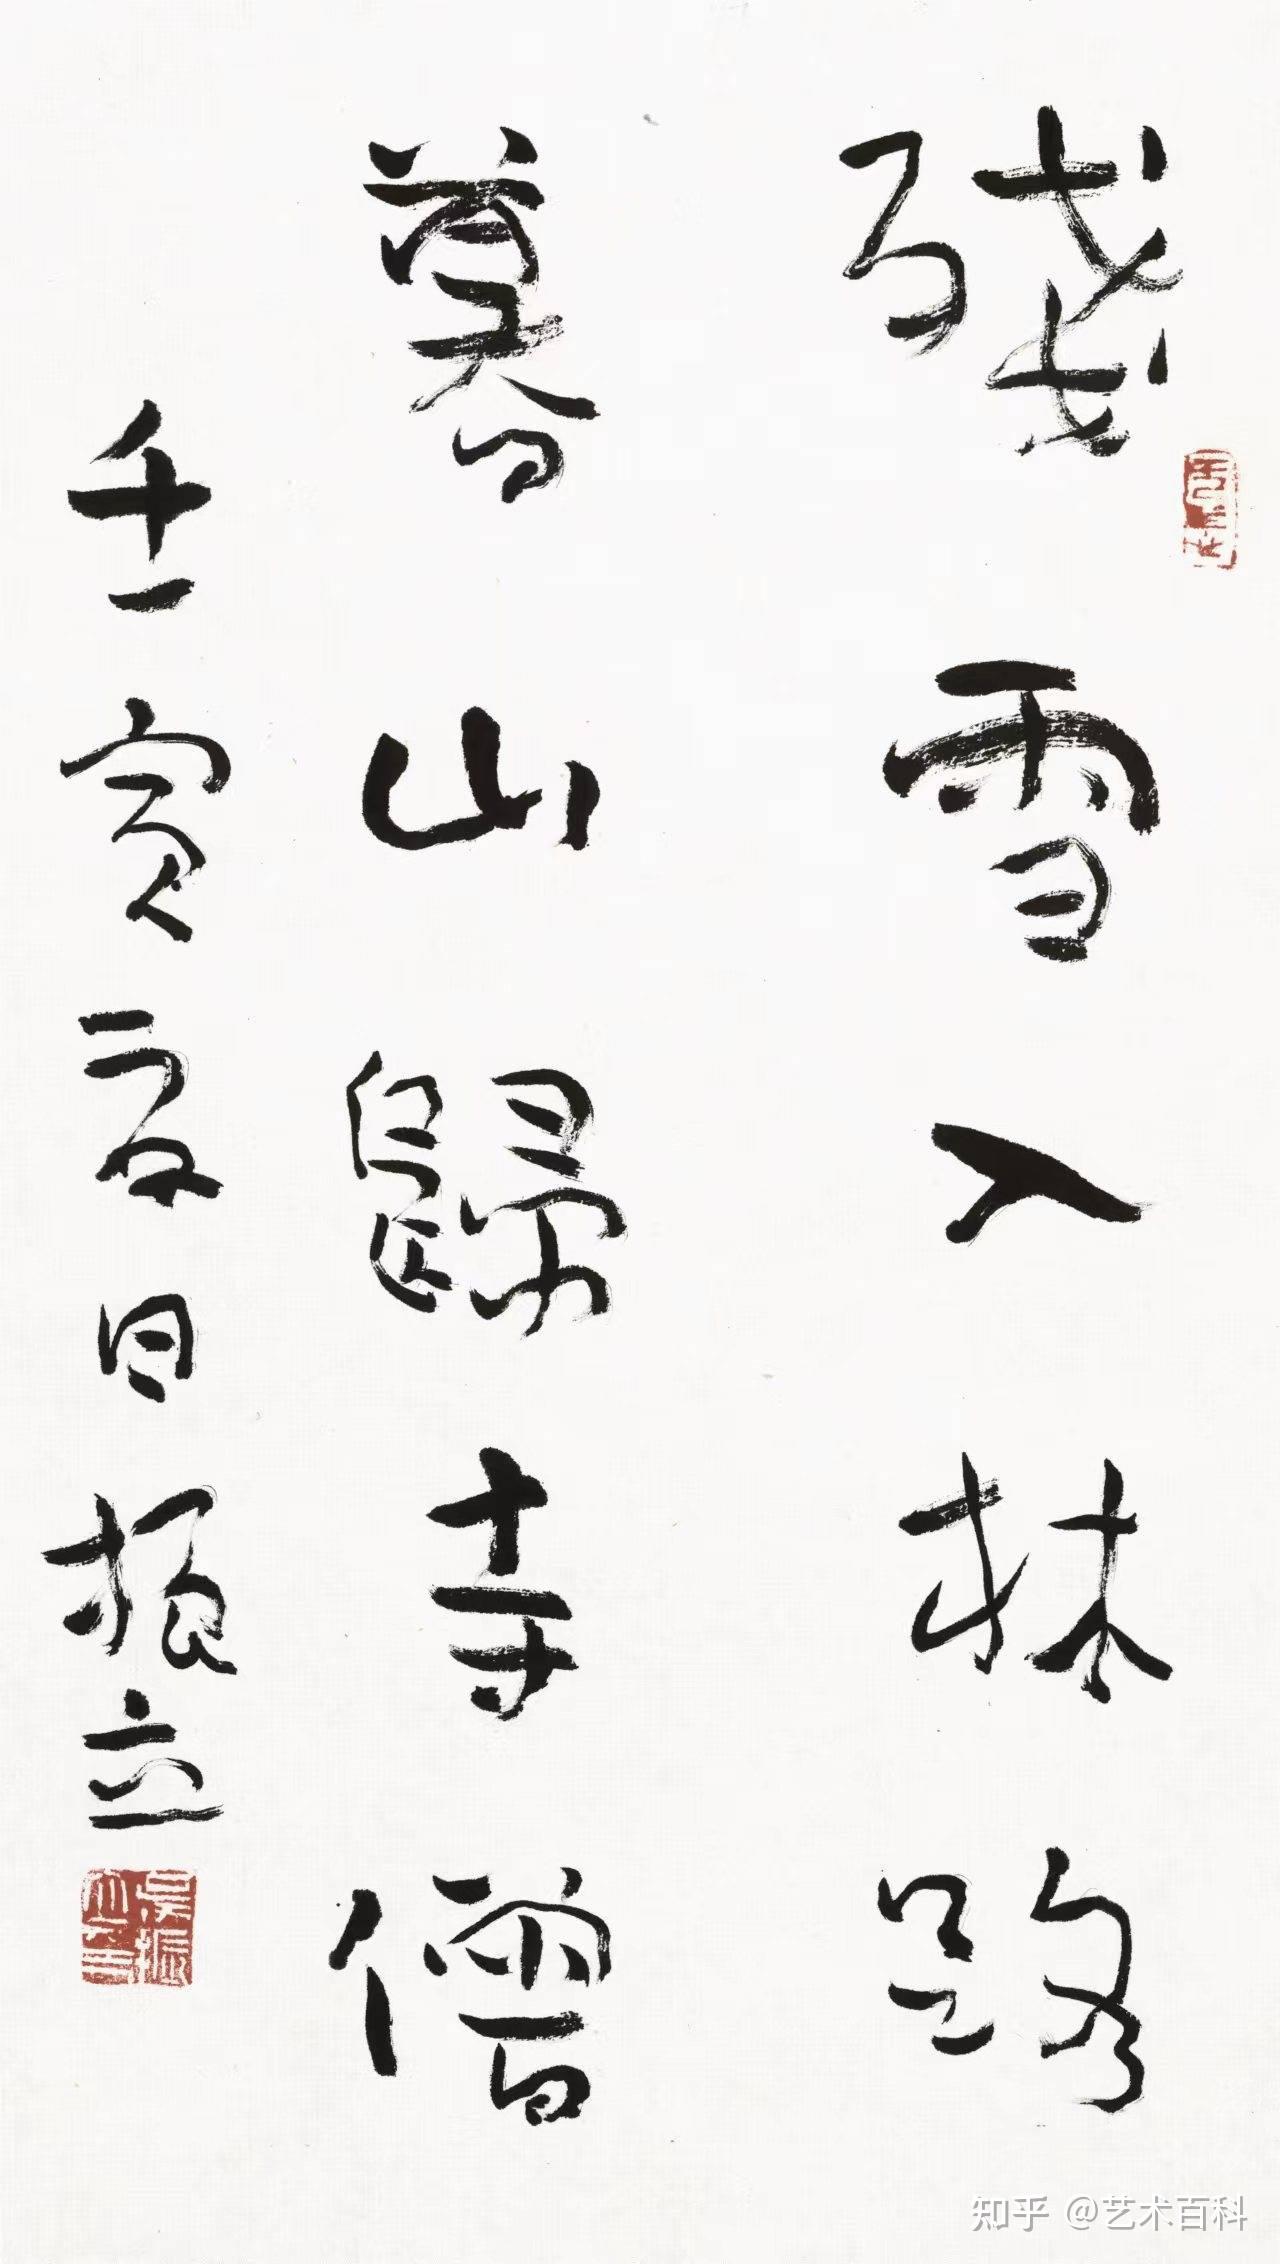 殘雪入林路
暮山歸寺僧
壬寅夏日振立
吳振立
知乎 @艺术百科